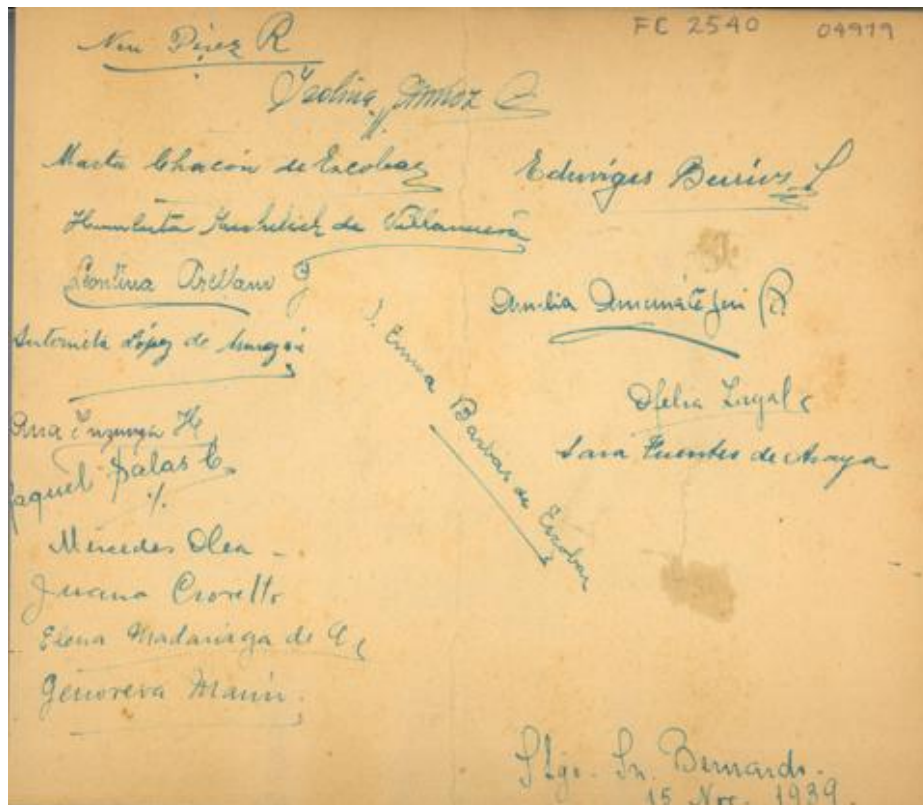 FC 2540 04979
Pérez R
Isolina Muñoz C
Marta Chacón de Escobar
Eduviges Berríos L
Humberta de Villanueva
Leontina Arellano G
Amelia Amunátegui R.
Antonieta López de
J. Emma Barbas de Escobar
Ofelia Lagal
Ana Inzunza H
Sara Fuentes de Araya
Raquel Salas C.
Mercedes Olea
Juana Crovetto
Elena Madariaga de
Genoveva Marín.
Stgo. Sn. Bernardo.
15 Nov. 1939